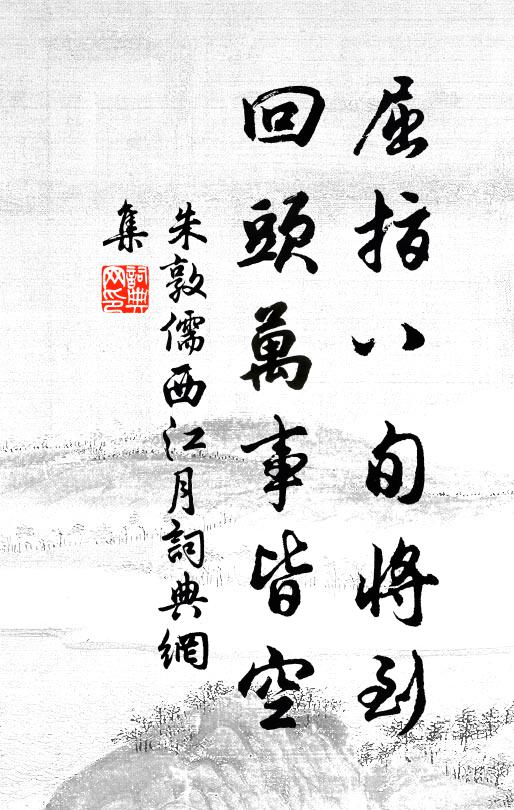 屈指八旬將到
回頭萬事皆空
朱敦儒西江月詞典網
集
詞典網印